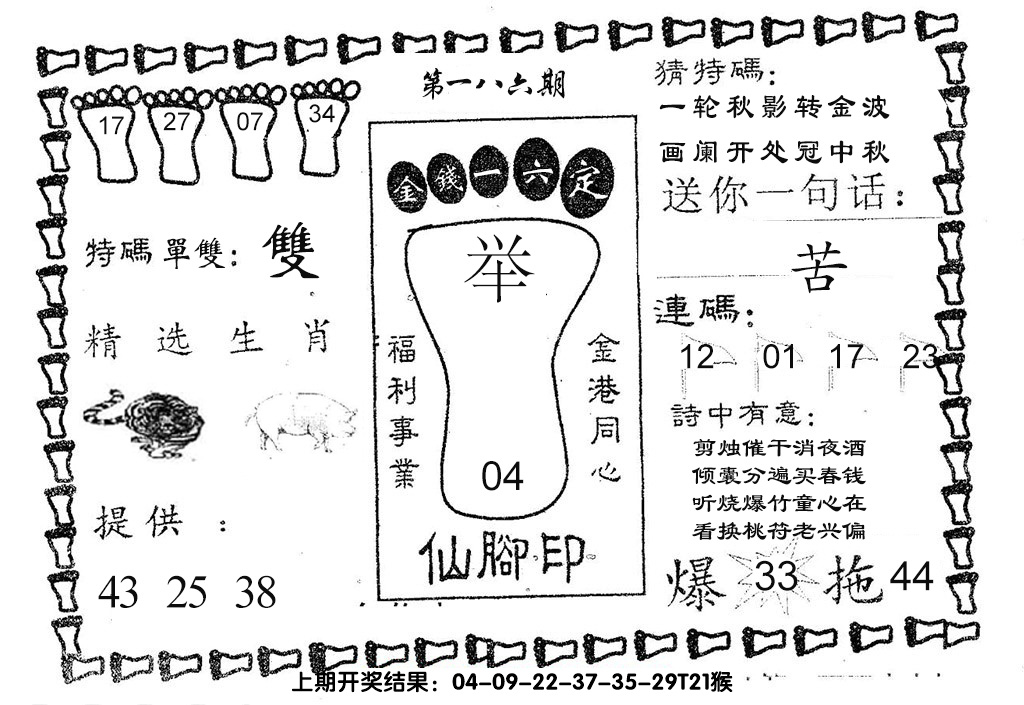 第一八六期
17 27 07 34
特碼單雙：雙
精选生肖
提供：
43 25 38
金錢一六定
举
福利事業
金港同心
04
仙腳印
猜特碼：
一轮秋影转金波
画阑开处冠中秋
送你一句话：
苦
連碼：
12 01 17 23
詩中有意：
剪烛催干消夜酒
倾囊分遍买春钱
听烧爆竹童心在
看换桃符老兴偏
爆 33 拖 44
上期开奖结果：04-09-22-37-35-29T21猴